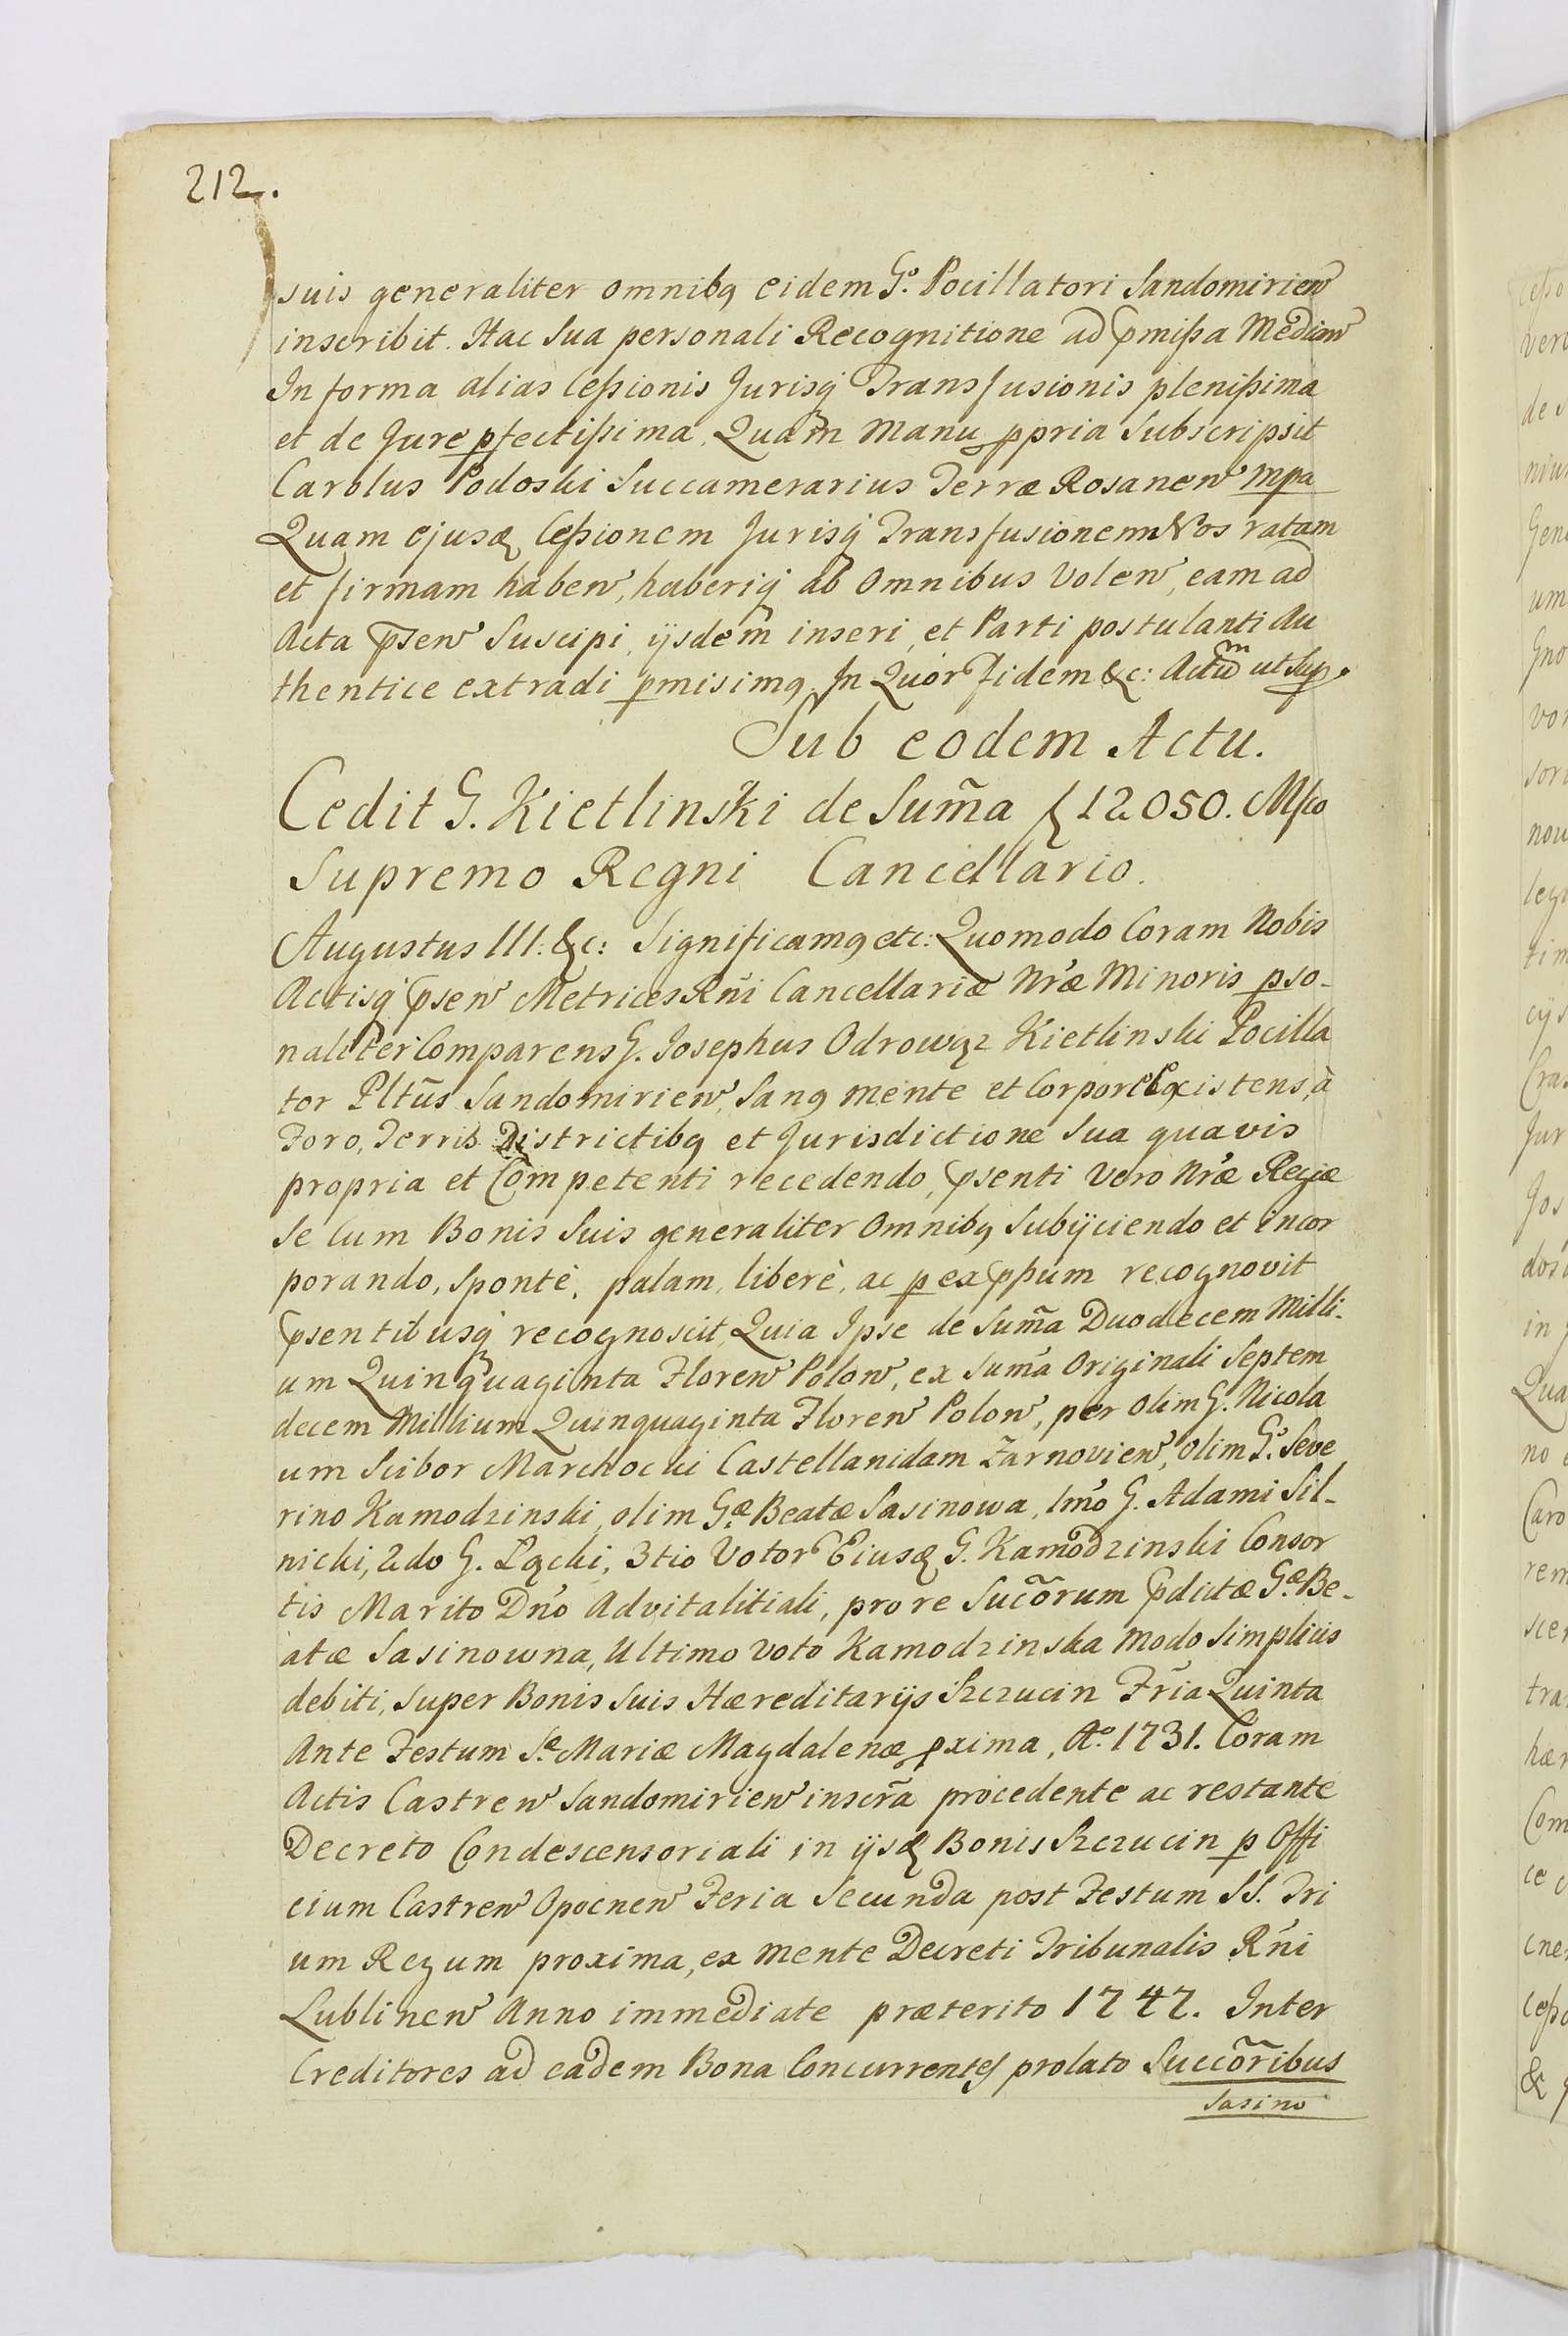 212.
suis generaliter omnibq eidem G°. Pocillatori Sandomirien̄
inscribit. Hac Sua personali Recognitione ad p̄mißa Median̄
In forma alias Ceßionis Jurisq́ Transfusionis plenißima
et de Jure pfectißima, Quam Manu ppria Subscripsit
Carolus Podoski Succamerarius Terræ Rosanen̄ mpa
Quam ejusq Ceßionem Jurisq́ Transfusionem Nos ratam
et firmam haben̄, haberiq́ ab Omnibus Volen̄, eam ad
Acta p̄sen̄ Suscipi, ijsdem̄ inseri, et Parti postulanti Au
thentice extradi pmisimq. In Quor̄ Fidem &c: Actūm ut Sup.
Sub eodem Actu.
Cedit G. Kietlinski de Sum̃a f 12050. Mfco
Supremo Regni Cancellario.
Augustus III. &c: Significamq etc: Quomodo Coram Nobis
Actisq́ p̄sen̄ Metrices Rñi Cancellariæ Nr̃æ Minoris pso-
naliter Comparens G. Josephus Odrowąz Kietlinski Pocilla
tor Pltũs Sandomirien̄, Sanq mente et Corpore Existens, à
Foro, Terris Districtibq et Jurisdictione Sua quavis
propria et Competenti recedendo, p̄senti Vero Nr̃æ Regiæ
Se Cum Bonis Suis generaliter Omnibq Subijciendo et incor
porando, Spontè, palam, liberè, ac p exp̄ßum recognovit
p̄sentibusq́ recognoscit, Quia Ipse de Sum̃a Duodecem Milli-
um Quinquaginta Floren̄ Polon̄, ex Sum̃a Originali Septem
decem Millium Quinquaginta Floren̄ Polon̄, per olim G. Nicola
um Scibor Marchocki Castellanidam Zarnovien̄, olim G°. Seve
rino Kamodzinski, olim Gæ Beatæ Sasinowa, 1mo G. Adami Sil-
nicki, 2do G. Łącki, 3tio Votor̄ Eiusq G. Kamodzinski Consor
tis Marito Dño Advitalitiali, pro re Sucõrum p̄dictæ Gæ Be-
atæ Sasinowna, Ultimo voto Kamodzinska Modo Simplicis
debiti, Super Bonis Suis Hæreditarijs Szczucin Fr̃ia Quinta
Ante Festum Sæ Mariæ Magdalenæ pxima, A°. 1731. Coram
Actis Castren̄ Sandomirien̄ inscr̃a procedente ac restante
Decreto Condescensoriali in ijsq Bonis Szczucin p Offi
cium Castren̄ Opocnen̄ Feria Secunda post Festum SS. Tri
um Regum proxima, ex mente Decreti Tribunalis Rñi
Lublinen̄ Anno immediate præterito 1747. Inter
Creditores ad eadem Bona Concurrentes prolato Succõribus
Sasino